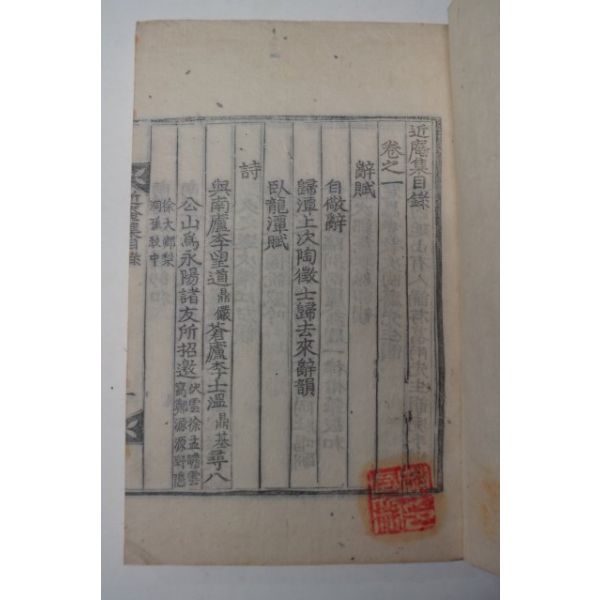 近庵集目錄
卷之一
辭賦
自儆辭
歸潭上次陶徵士歸去來辭韻
臥龍潭賦
詩
與南廬李望道鼎儼蒼廬李士溫鼎基尋八
公山爲永陽諸友所招邀伏雲徐孟瞻雲窩鄭源源野隱
徐大鄭梨
集目錄